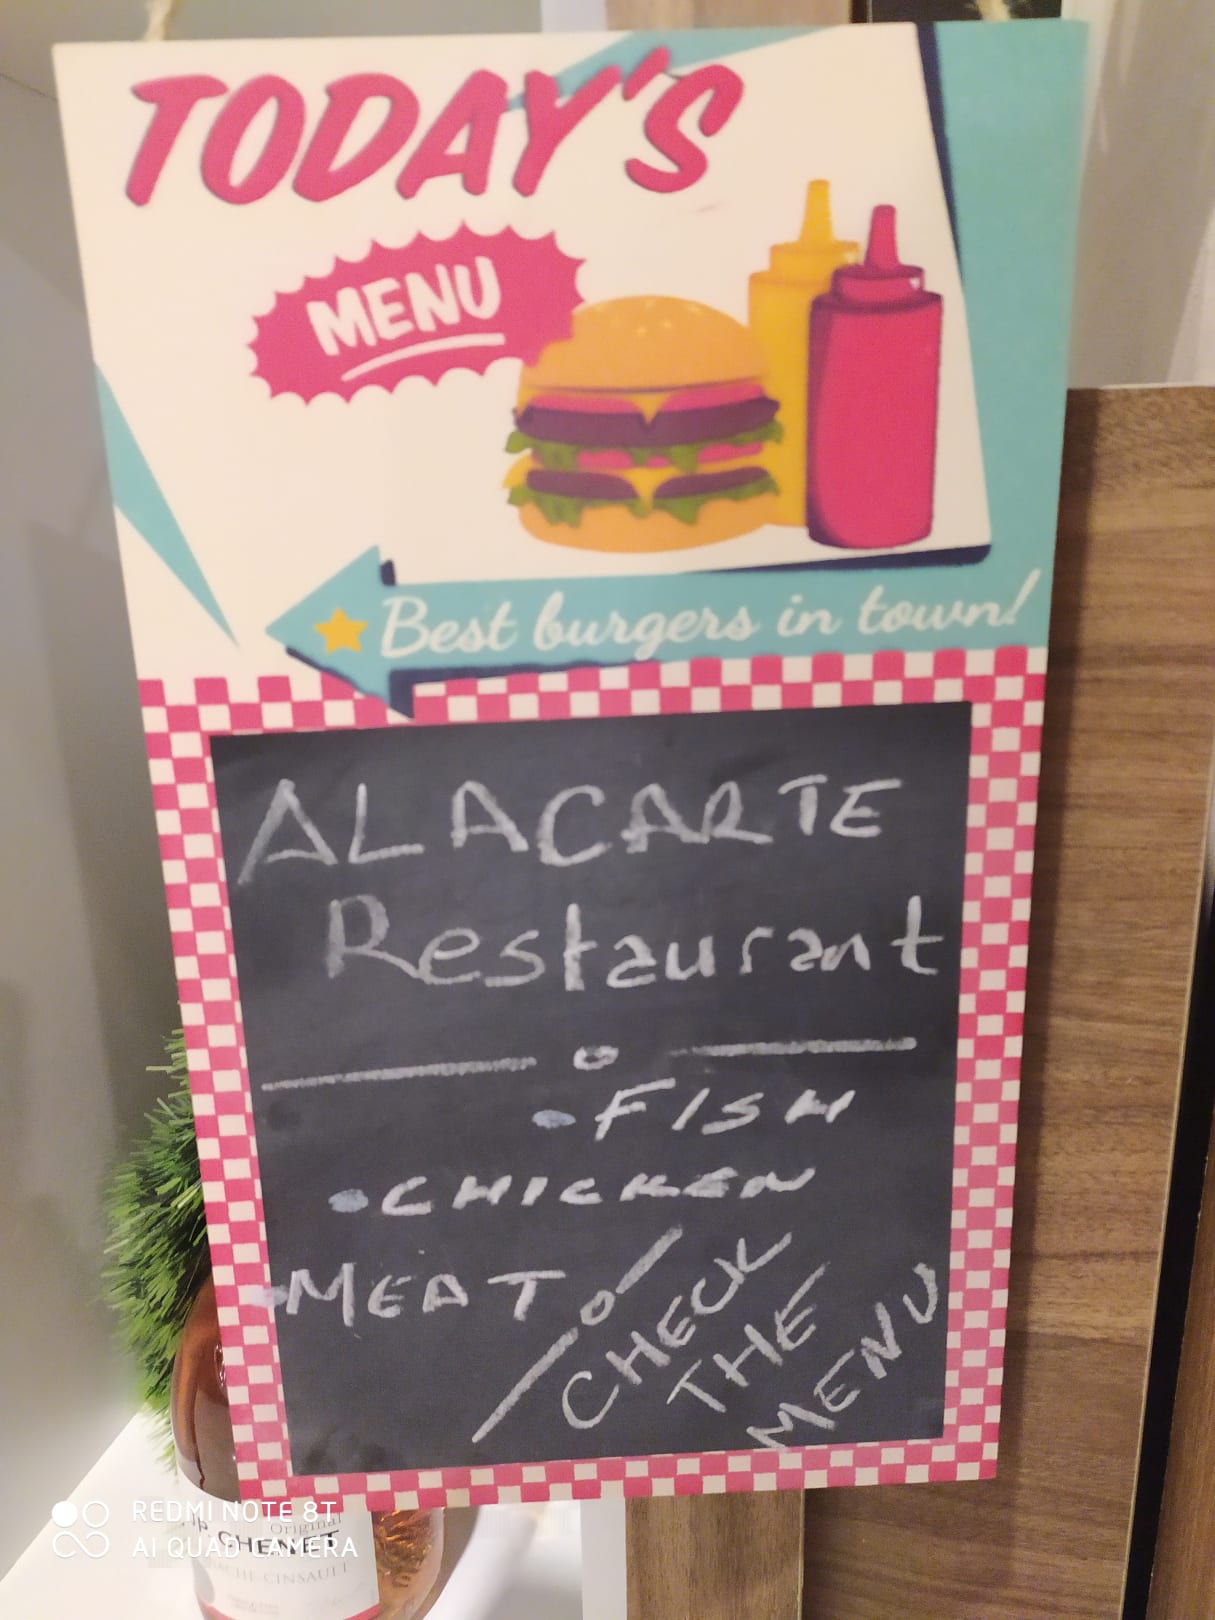 TODAY'S
MENU
Best burgers in town!
ALACARTE
Restaurant
• FISH
• CHICKEN
• MEAT
CHECK
THE
MENU
REDMI NOTE 8T
AI QUAD CAMERA
Original
CHENET
CINSAULT